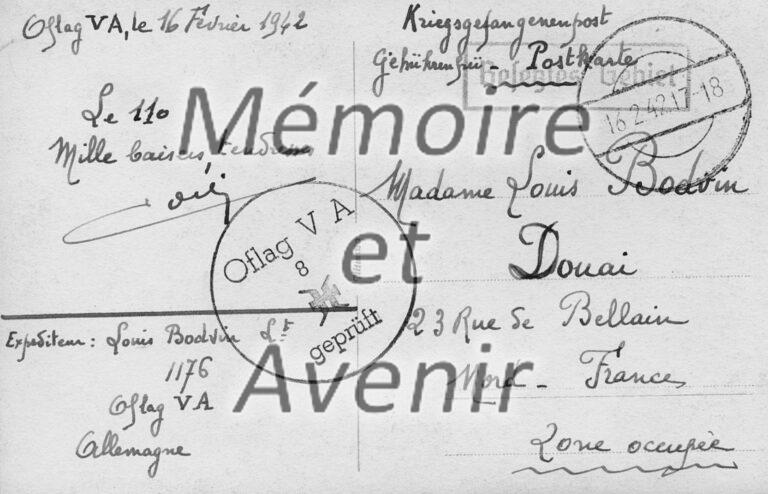 Oflag VA, le 16 Février 1942
Le 110
Mille baisers tendresses
Expediteur: Louis Bodvin Lt
1176
Oflag VA
Allemagne
Kriegsgefangenenpost
Gebührenfrei - Postkarte
Belegtes Gebiet
16.2.42.17-18
Madame Louis Bodvin
Douai
23 Rue de Bellain
Nord - France
Zone occupée
Oflag V A
8
geprüft
Mémoire
et
Avenir